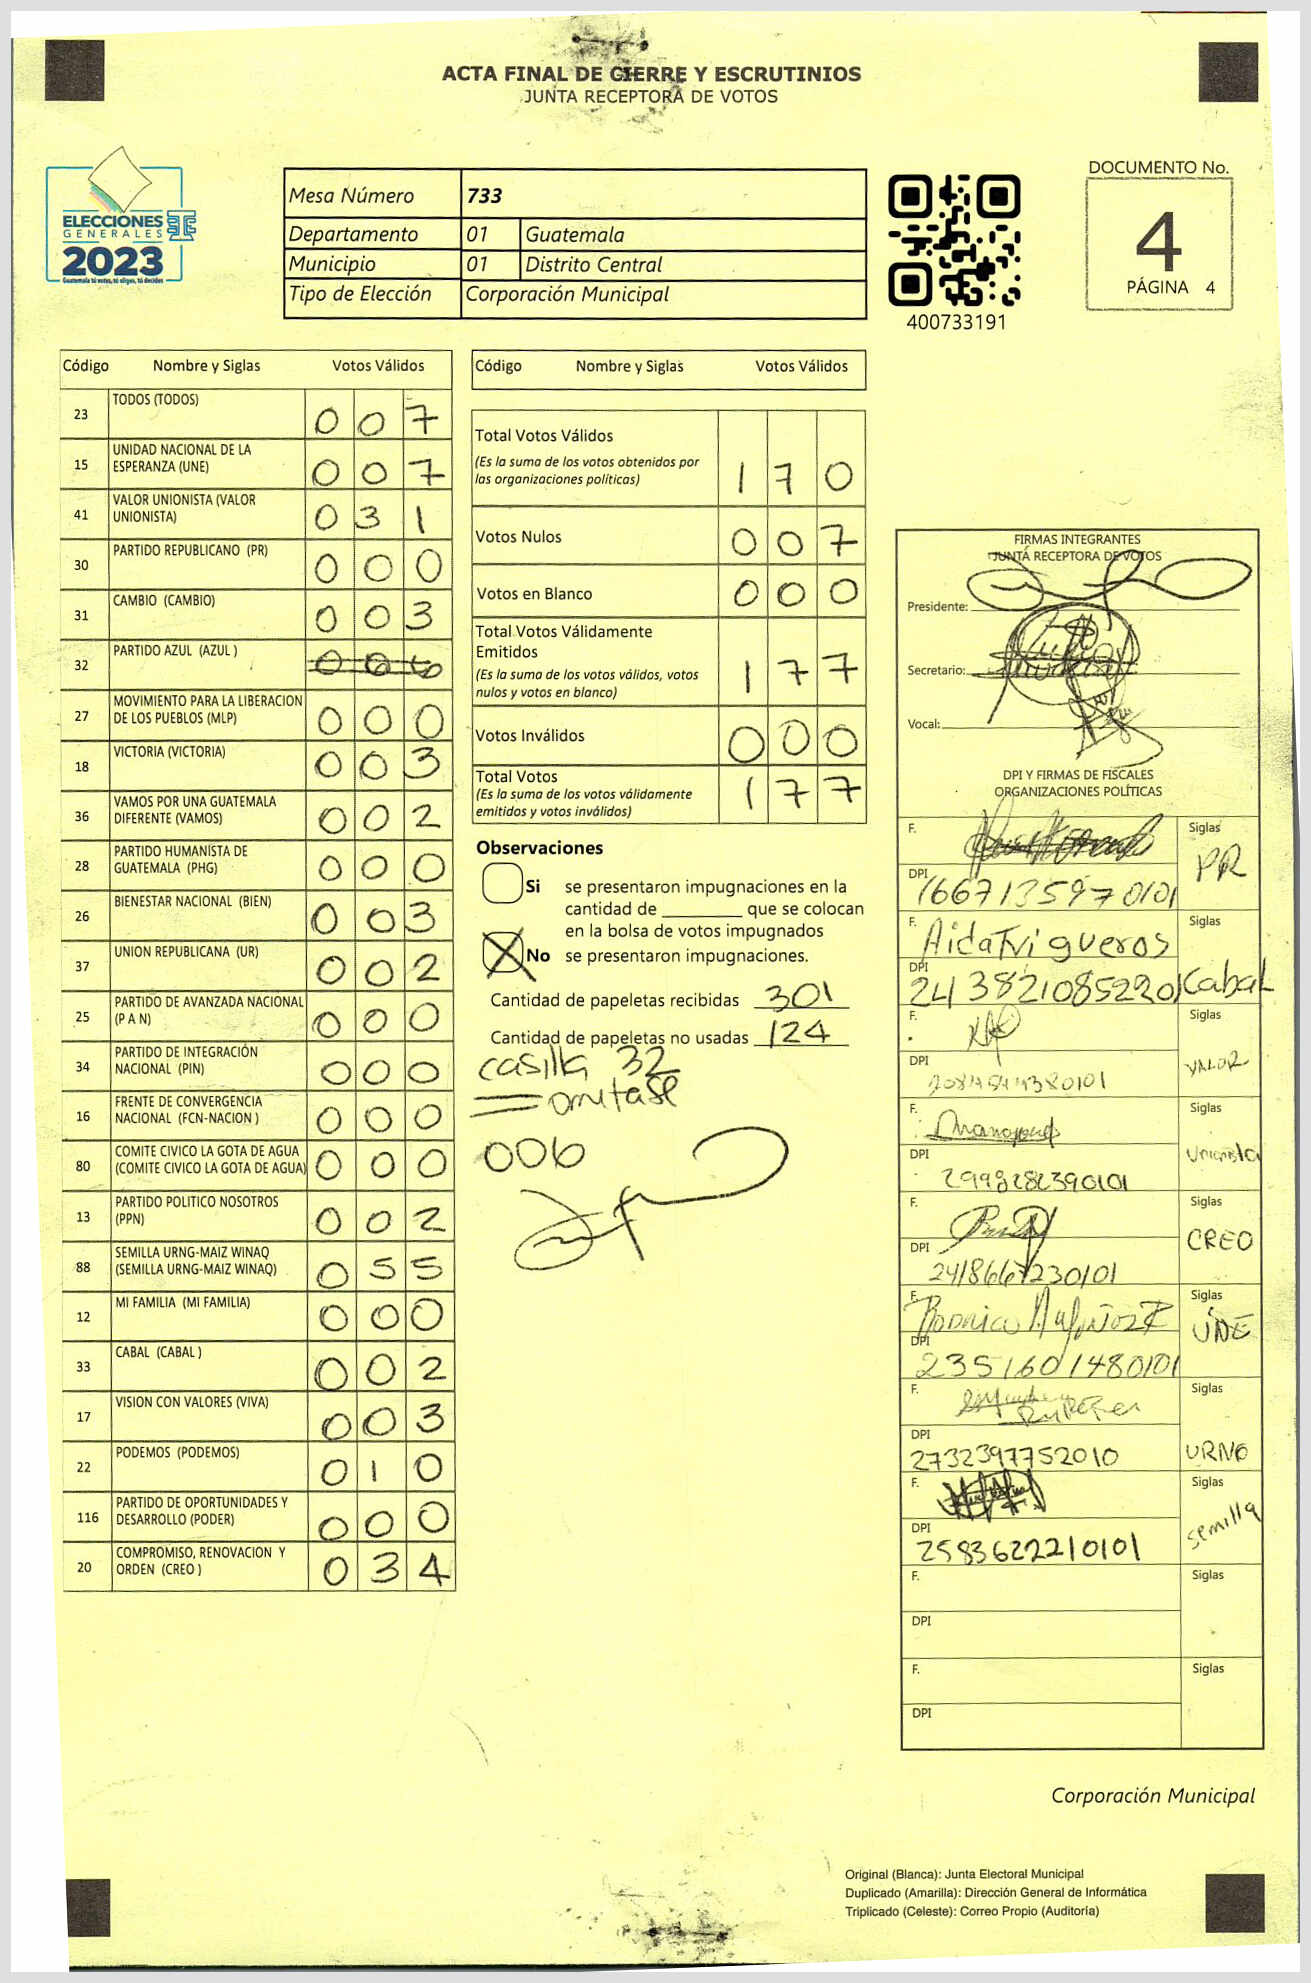 ACTA FINAL DE CIERRE Y ESCRUTINIOS
JUNTA RECEPTORA DE VOTOS
ELECCIONES
GENERALES
2023
Guatemala tú votas, tú eliges, tú decides
Mesa Número 733
Departamento 01 Guatemala
Municipio 01 Distrito Central
Tipo de Elección Corporación Municipal
400733191
DOCUMENTO No.
4
PÁGINA 4
Código Nombre y Siglas Votos Válidos
23 TODOS (TODOS) 0 0 7
15 UNIDAD NACIONAL DE LA ESPERANZA (UNE) 0 0 7
41 VALOR UNIONISTA (VALOR UNIONISTA) 0 3 1
30 PARTIDO REPUBLICANO (PR) 0 0 0
31 CAMBIO (CAMBIO) 0 0 3
32 PARTIDO AZUL (AZUL ) 0 0 6
27 MOVIMIENTO PARA LA LIBERACION DE LOS PUEBLOS (MLP) 0 0 0
18 VICTORIA (VICTORIA) 0 0 3
36 VAMOS POR UNA GUATEMALA DIFERENTE (VAMOS) 0 0 2
28 PARTIDO HUMANISTA DE GUATEMALA (PHG) 0 0 0
26 BIENESTAR NACIONAL (BIEN) 0 0 3
37 UNION REPUBLICANA (UR) 0 0 2
25 PARTIDO DE AVANZADA NACIONAL (P A N) 0 0 0
34 PARTIDO DE INTEGRACIÓN NACIONAL (PIN) 0 0 0
16 FRENTE DE CONVERGENCIA NACIONAL (FCN-NACION ) 0 0 0
80 COMITE CIVICO LA GOTA DE AGUA (COMITE CIVICO LA GOTA DE AGUA) 0 0 0
13 PARTIDO POLITICO NOSOTROS (PPN) 0 0 2
88 SEMILLA URNG-MAIZ WINAQ (SEMILLA URNG-MAIZ WINAQ) 0 5 5
12 MI FAMILIA (MI FAMILIA) 0 0 0
33 CABAL (CABAL ) 0 0 2
17 VISION CON VALORES (VIVA) 0 0 3
22 PODEMOS (PODEMOS) 0 1 0
116 PARTIDO DE OPORTUNIDADES Y DESARROLLO (PODER) 0 0 0
20 COMPROMISO, RENOVACION Y ORDEN (CREO ) 0 3 4
Código Nombre y Siglas Votos Válidos
Total Votos Válidos
(Es la suma de los votos obtenidos por
las organizaciones políticas) 1 7 0
Votos Nulos 0 0 7
Votos en Blanco 0 0 0
Total Votos Válidamente
Emitidos
(Es la suma de los votos válidos, votos
nulos y votos en blanco) 1 7 7
Votos Inválidos 0 0 0
Total Votos
(Es la suma de los votos válidamente
emitidos y votos inválidos) 1 7 7
Observaciones
Si se presentaron impugnaciones en la
cantidad de ________ que se colocan
en la bolsa de votos impugnados
No se presentaron impugnaciones.
Cantidad de papeletas recibidas 301
Cantidad de papeletas no usadas 124
casilla 32
omitase
006
FIRMAS INTEGRANTES
JUNTA RECEPTORA DE VOTOS
Presidente:
Secretario:
Vocal:
DPI Y FIRMAS DE FISCALES
ORGANIZACIONES POLÍTICAS
F. Siglas
DPI 1667135970101 PR
F. Aida Trigueros Siglas
DPI 2438210852201 Cabal
F. Siglas
DPI VALOR
F. Siglas
DPI 2998282390101 Unionista
F. Siglas
DPI 2418667230101 CREO
F. Siglas
DPI 2351601480101 UNE
F. Siglas
DPI 2732397752010 URNG
F. Siglas
DPI 2583622210101 semilla
F. Siglas
DPI
F. Siglas
DPI
Corporación Municipal
Original (Blanca): Junta Electoral Municipal
Duplicado (Amarilla): Dirección General de Informática
Triplicado (Celeste): Correo Propio (Auditoría)